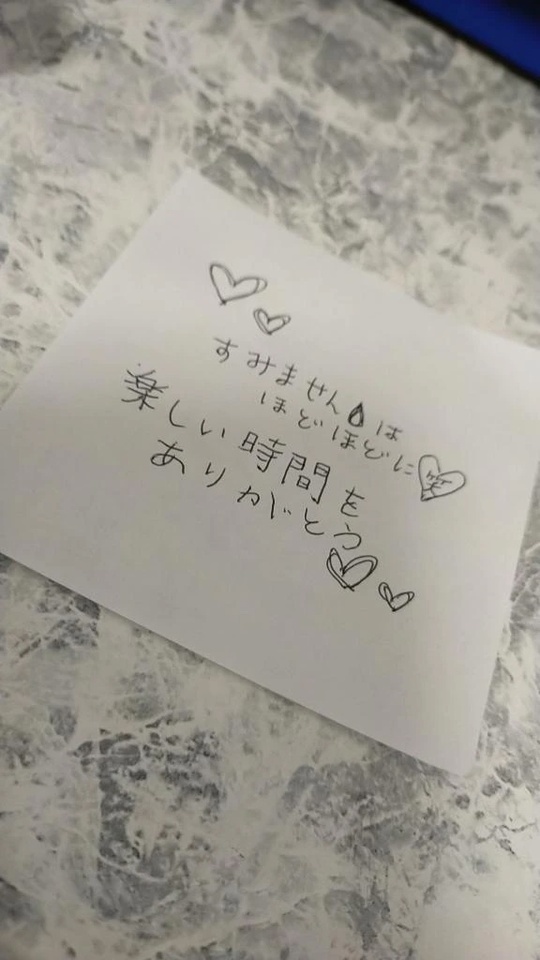 すみません💧は
ほどほどに笑
楽しい時間を
ありがとう